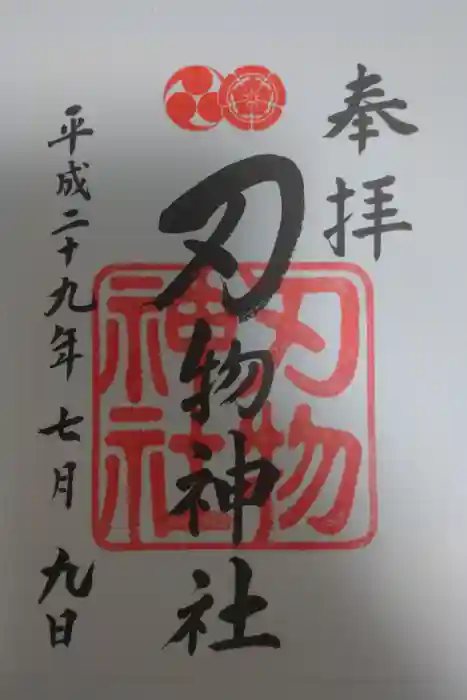 奉拝
刃物神社
刃物
神社
平成二十九年七月九日